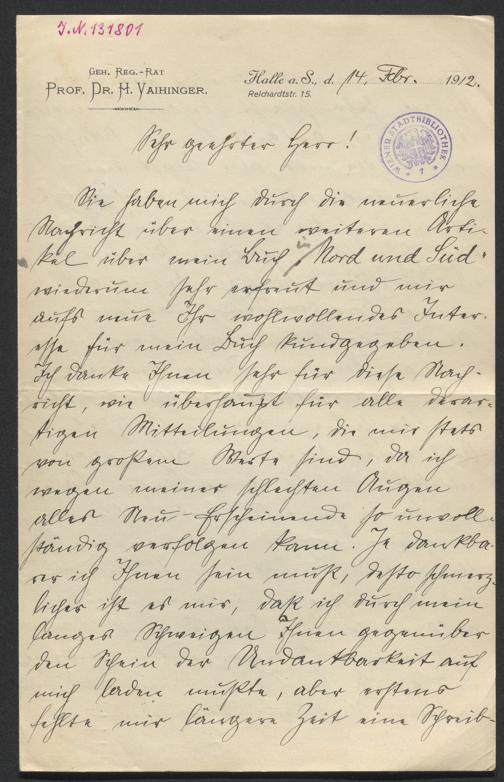 J.N. 131801
GEH. REG.-RAT
PROF. DR. H. VAIHINGER.
Halle a. S., d. 14. Febr. 1912.
Reichardtstr. 15.
WIENER STADTBIBLIOTHEK
Sehr geehrter Herr!
Sie haben mich durch die neuerliche
Nachricht über einen weiteren Arti-
kel über mein Buch in „Nord und Süd"
wiederum sehr erfreut und mir
aufs neue Ihr wohlwollendes Inter-
esse für mein Buch kundgegeben.
Ich danke Ihnen sehr für diese Nach-
richt, wie überhaupt für alle derar-
tigen Mitteilungen, die mir stets
von großem Werte sind, da ich
wegen meiner schlechten Augen
alles Neu-Erscheinende so unvoll-
ständig verfolgen kann. Je dankba-
rer ich Ihnen sein muß, desto schmerz-
licher ist es mir, daß ich durch mein
langes Schweigen Ihnen gegenüber
den Schein der Undankbarkeit auf
mich laden mußte, aber erstens
fehlte mir längere Zeit eine Schreib-